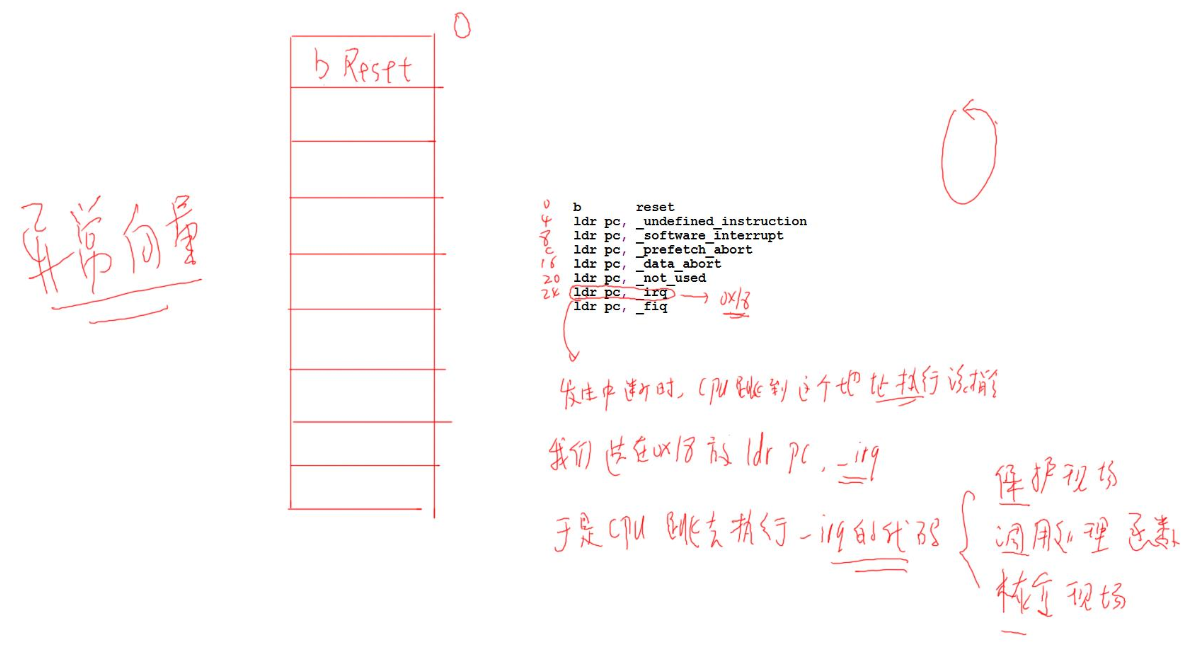 0
b Reset
异常向量
0 b reset
4 ldr pc, _undefined_instruction
8 ldr pc, _software_interrupt
c ldr pc, _prefetch_abort
16 ldr pc, _data_abort
20 ldr pc, _not_used
24 ldr pc, _irq → 0x18
ldr pc, _fiq
发生中断时, CPU跳到这个地址执行该指令
我们 在0x18 放 ldr pc, _irq
于是CPU 跳去执行 _irq的代码
保护现场
调用处理函数
恢复现场